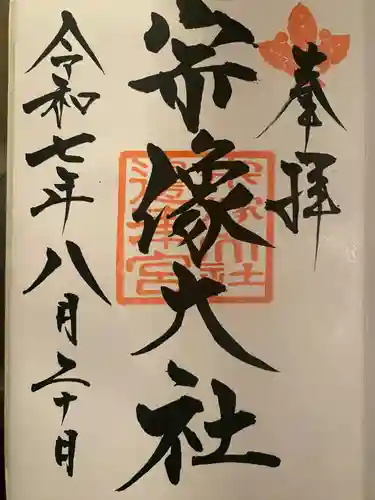 奉拝
宗像大社
令和七年八月二十日
宗像大社
邊津宮